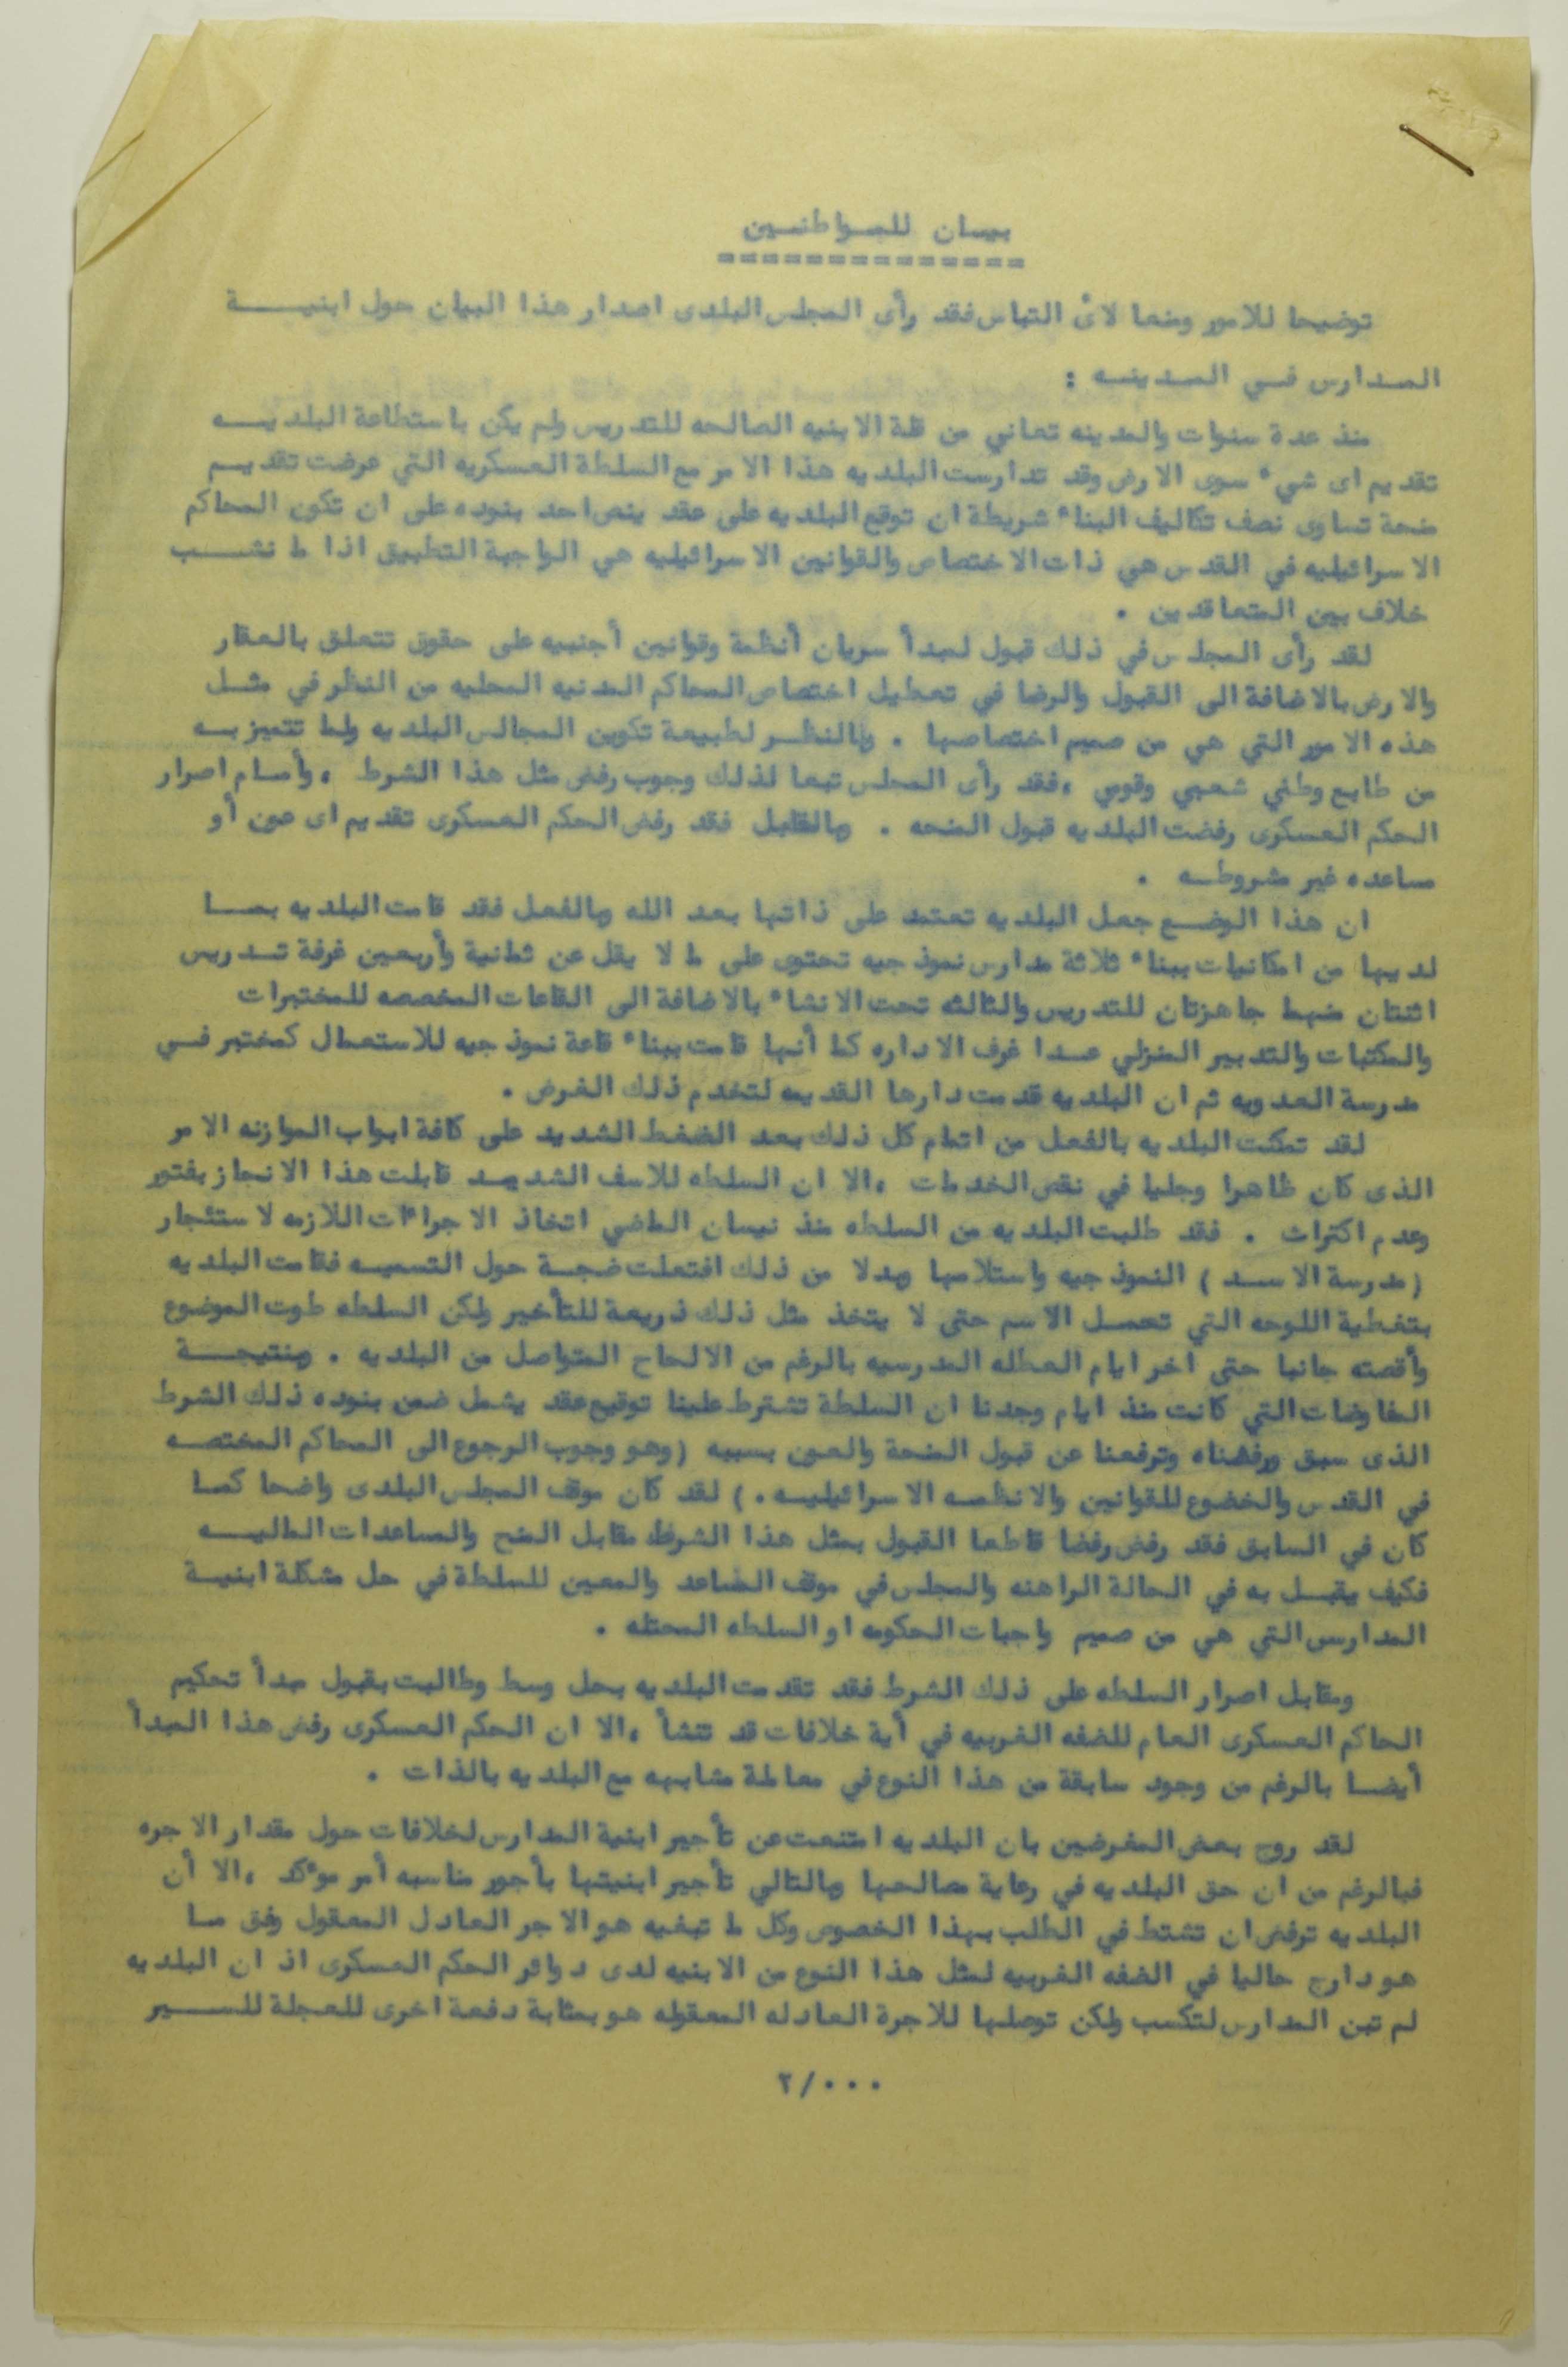 بيان للمواطنين
==============
توضيحا للامور ومنعا لائ التباس فقد رأى المجلس البلدى اصدار هذا البيان حول ابنية
المدارس في المدينه :
منذ عدة سنوات والمدينه تعاني من قلة الابنيه الصالحه للتدريس ولم يكن باستطاعة البلديه
تقديم اى شيء سوى الارض وقد تدارست البلديه هذا الامر مع السلطة العسكريه التي عرضت تقديم
منحة تساوى نصف تكاليف البناء شريطة ان توقع البلديه على عقد ينص احد بنوده على ان تكون المحاكم
الاسرائيليه في القدس هي ذات الاختصاص والقوانين الاسرائيليه هي الواجبة التطبيق اذا ما نشب
خلاف بين المتعاقدين .
لقد رأى المجلس في ذلك قبول لمبدأ سريان أنظمة وقوانين أجنبيه على حقوق تتعلق بالعقار
والارض بالاضافة الى القبول والرضا في تعطيل اختصاص المحاكم المدنيه المحليه من النظر في مثل
هذه الامور التي هي من صميم اختصاصها . وبالنظر لطبيعة تكوين المجالس البلديه ولما تتميز به
من طابع وطني شعبي وقومي ، فقد رأى المجلس تبعا لذلك وجوب رفض مثل هذا الشرط ، وأمام اصرار
الحكم العسكرى رفضت البلديه قبول المنحه . وبالمقابل فقد رفض الحكم العسكرى تقديم اى عون أو
مساعده غير مشروطه .
ان هذا الوضع جعل البلديه تعتمد على ذاتها بعد الله وبالفعل فقد قامت البلديه بما
لديها من امكانيات ببناء ثلاثة مدارس نموذجيه تحتوى على ما لا يقل عن ثمانية وأربعين غرفة تدريس
اثنتان منهما جاهزتان للتدريس والثالثه تحت الانشاء بالاضافة الى القاعات المخصصه للمختبرات
والمكتبات والتدبير المنزلي عدا غرف الاداره كما أنها قامت ببناء قاعة نموذجيه للاستعمال كمختبر في
مدرسة العدويه ثم ان البلديه قدمت دارها القديمه لتخدم ذلك الغرض .
لقد تمكنت البلديه بالفعل من اتمام كل ذلك بعد الضغط الشديد على كافة ابواب الموازنه الامر
الذى كان ظاهرا وجليا في نقص الخدمات ، الا ان السلطه للاسف الشديد قابلت هذا الانجاز بفتور
وعدم اكتراث . فقد طلبت البلديه من السلطه منذ نيسان الماضي اتخاذ الاجراءات اللازمه لاستئجار
( مدرسة الاسد ) النموذجيه واستلامها وبدلا من ذلك افتعلت ضجة حول التسميه فقامت البلديه
بتغطية اللوحه التي تحمل الاسم حتى لا يتخذ مثل ذلك ذريعة للتأخير ولكن السلطه طوت الموضوع
وأقصته جانبا حتى اخر ايام العطله المدرسيه بالرغم من الالحاح المتواصل من البلديه . وبنتيجة
المفاوضات التي كانت منذ ايام وجدنا ان السلطة تشترط علينا توقيع عقد يشمل ضمن بنوده ذلك الشرط
الذى سبق ورفضناه وترفعنا عن قبول المنحة والعون بسببه ( وهو وجوب الرجوع الى المحاكم المختصه
في القدس والخضوع للقوانين والانظمه الاسرائيليه . ) لقد كان موقف المجلس البلدى واضحا كما
كان في السابق فقد رفض رفضا قاطعا القبول بمثل هذا الشرط مقابل المنح والمساعدات الماليه
فكيف يقبل به في الحالة الراهنه والمجلس في موقف المساعد والمعين للسلطة في حل مشكلة ابنية
المدارس التي هي من صميم واجبات الحكومه او السلطه المحتله .
ومقابل اصرار السلطه على ذلك الشرط فقد تقدمت البلديه بحل وسط وطالبت بقبول مبدأ تحكيم
الحاكم العسكرى العام للضفه الغربيه في أية خلافات قد تنشأ ، الا ان الحكم العسكرى رفض هذا المبدأ
أيضا بالرغم من وجود سابقة من هذا النوع في معاملة مشابهه مع البلديه بالذات .
لقد روج بعض المغرضين بان البلديه امتنعت عن تأجير ابنية المدارس لخلافات حول مقدار الاجره
فبالرغم من ان حق البلديه في رعاية مصالحها وبالتالي تأجير ابنيتها بأجور مناسبه أمر موءكد ، الا أن
البلديه ترفض ان تشتط في الطلب بهذا الخصوص وكل ما تبغيه هو الاجر العادل المعقول وفق ما
هو دارج حاليا في الضفه الغربيه لمثل هذا النوع من الابنيه لدى دوائر الحكم العسكرى اذ ان البلديه
لم تبن المدارس لتكسب ولكن توصلها للاجرة العادله المعقوله هو بمثابة دفعة اخرى للعجلة للسير
٢/٠٠٠